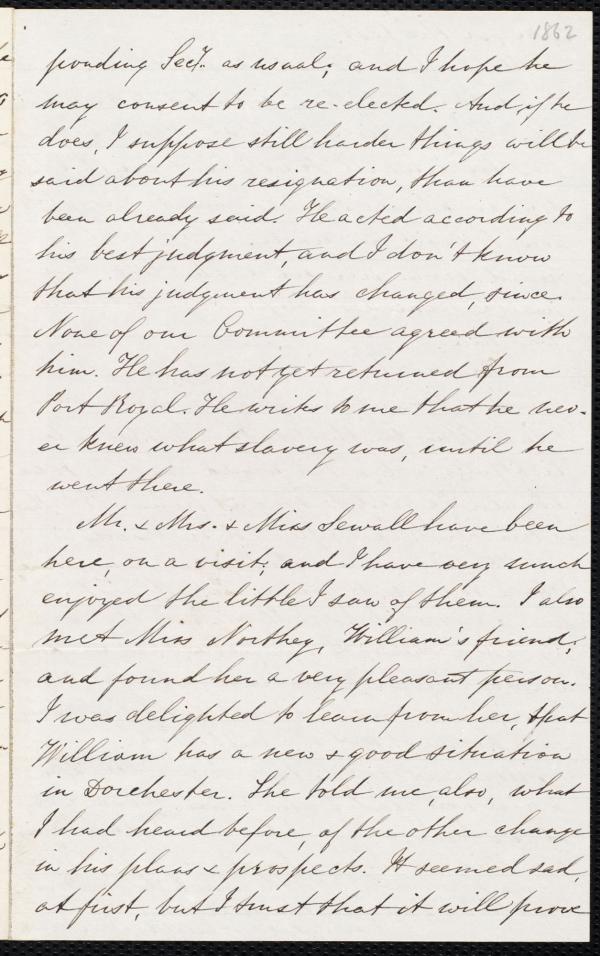 1862
ponding Secy. as usual; and I hope he
may consent to be re-elected. And, if he
does, I suppose still harder things will be
said about his resignation, than have
been already said. He acted according to
his best judgment, and I don't know
that his judgment has changed, since.
None of our Committee agreed with
him. He has not yet returned from
Port Royal. He writes to me that he nev-
er knew what slavery was, until he
went there.
Mr. & Mrs. & Miss Sewall have been
here, on a visit; and I have very much
enjoyed the little I saw of them. I also
met Miss Northey, William's friend,
and found her a very pleasant person.
I was delighted to learn from her, that
William has a new & good situation
in Dorchester. She told me, also, what
I had heard before, of the other change
in his plans & prospects. It seemed sad,
at first, but I trust that it will prove